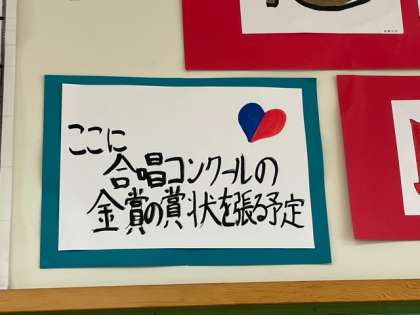 ここに
合唱コンクールの
金賞の賞状を張る予定